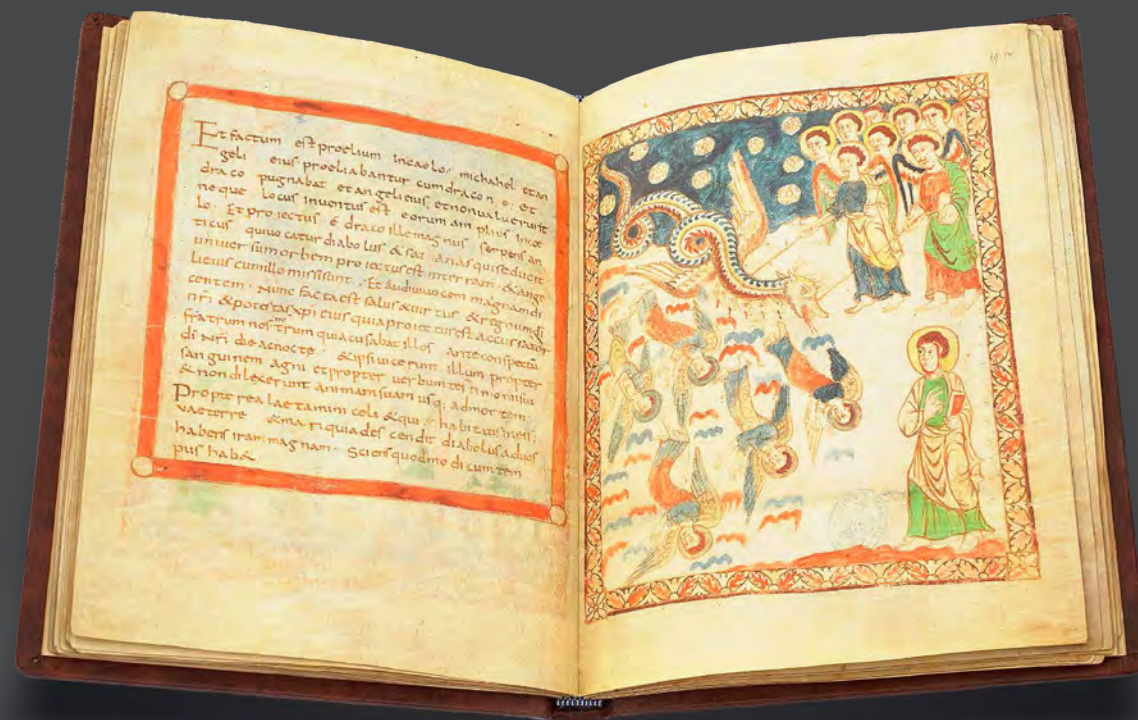 Et factum est proelium in caelo michahel et an
geli eius proeliabantur cum dracone et
draco pugnabat et angeli eius, et non ualuerunt
neque locus inuentus est eorum amplius in coe
lo. Et proiectus e draco ille magnus serpens an
ticus qui uocatur diabolus & satanas qui seducit
uniuersum orbem proiectus est in terram & ange
li eius cum illo missi sunt. Et audiui uocem magnam di
centem. Nunc facta est salus & uirtus & regnum di
nri & potestas xpi eius quia proiectus est accusator
fratrum nostrum qui accusabat illos ante conspectu
di nri die ac nocte & ipsi uicerunt illum propter
sanguinem agni et propter uerbum
& non dilexerunt animam suam usq; ad mortem.
Propterea laetamini celi & qui habitatis
uae terre & mari quia descendit diabolus ad uos
habens iram magnam. Sciens quod modicum tem
pus hab&